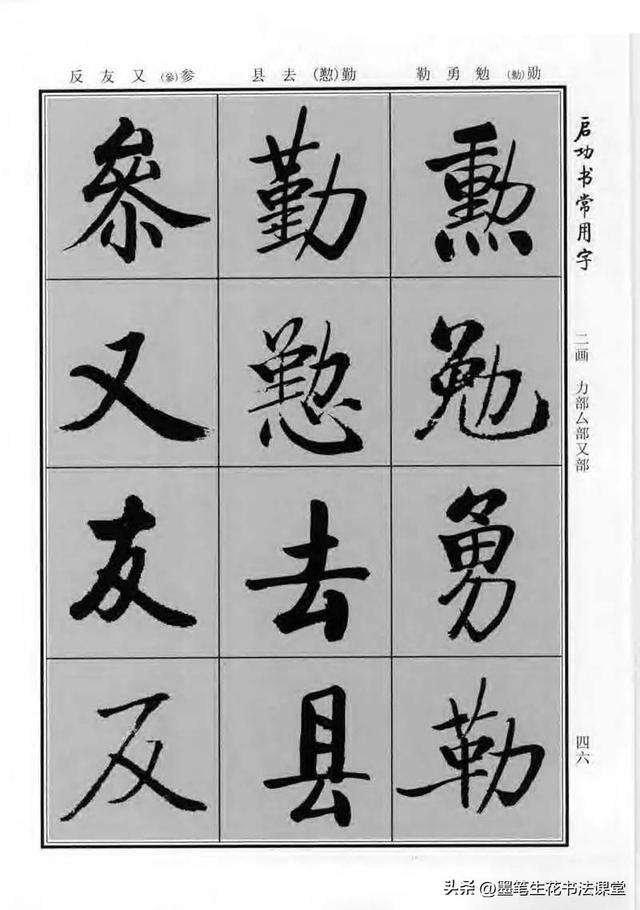 反友又(參)参 县去(懃)勤 勒勇勉(勳)勋
勳勉勇勒
勤懃去县
参又友反
启功书常用字
二画 力部厶部又部
四六
头条@墨笔生花书法课堂